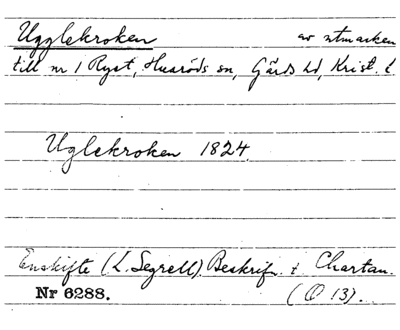 Ugglekroken av utmarken
till nr 1 Ryet, Huaröds sn, Gärds hd, Krist. l
Uglekroken 1824.
Enskifte (L. Segrell). Beskrifn. t. Chartan.
Nr 6288. (O 13).